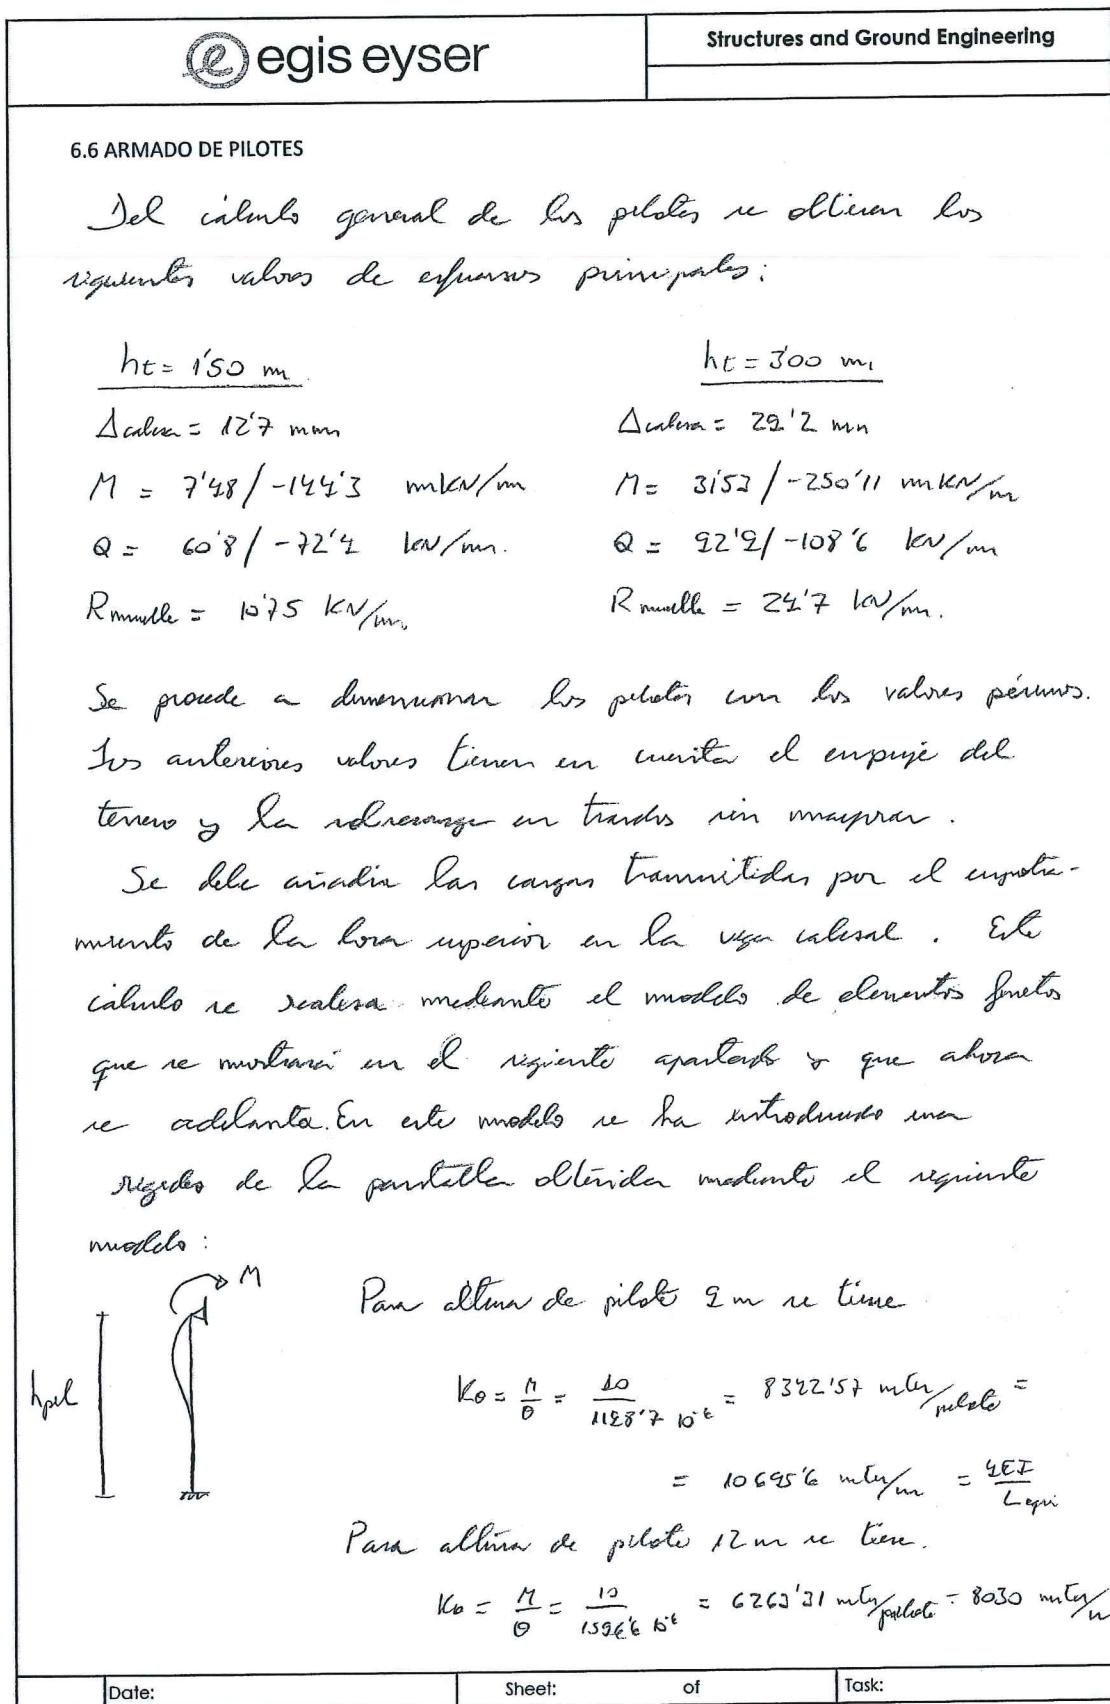 egis eyser
Structures and Ground Engineering
6.6 ARMADO DE PILOTES
Del cálculo general de los pilotes se obtienen los
siguientes valores de esfuerzos principales:
ht = 1'50 m
Δcabeza = 12'7 mm
M = 7'48 / -144'3 mkN/m
Q = 60'8 / -72'4 kN/m.
Rmuelle = 10'75 KN/m.
ht = 3'00 m
Δcabeza = 29'2 mm
M = 3'53 / -250'11 mkN/m
Q = 92'9 / -108'6 kN/m
Rmuelle = 24'7 kN/m.
Se procede a dimensionar los pilotes con los valores pésimos.
Los anteriores valores tienen en cuenta el empuje del
terreno y la sobrecarga en trasdós sin mayorar.
Se debe añadir las cargas transmitidas por el empotra-
miento de la losa superior en la viga cabezal. Este
cálculo se realiza mediante el modelo de elementos finitos
que se mostrará en el siguiente apartado y que ahora
se adelanta. En este modelo se ha introducido una
rigidez de la pantalla obtenida mediante el siguiente
modelo:
M
hpil
Para altura de pilote 9 m se tiene
Kθ = M/θ = 10/1198'7 10⁻⁶ = 8342'57 mtn/pilote =
= 10695'6 mtn/m = 4EI/Lequi
Para altura de pilote 12 m se tiene.
Kθ = M/θ = 10/1596'6 10⁻⁶ = 6263'31 mtn/pilote = 8030 mtn/m
Date: Sheet: of Task: